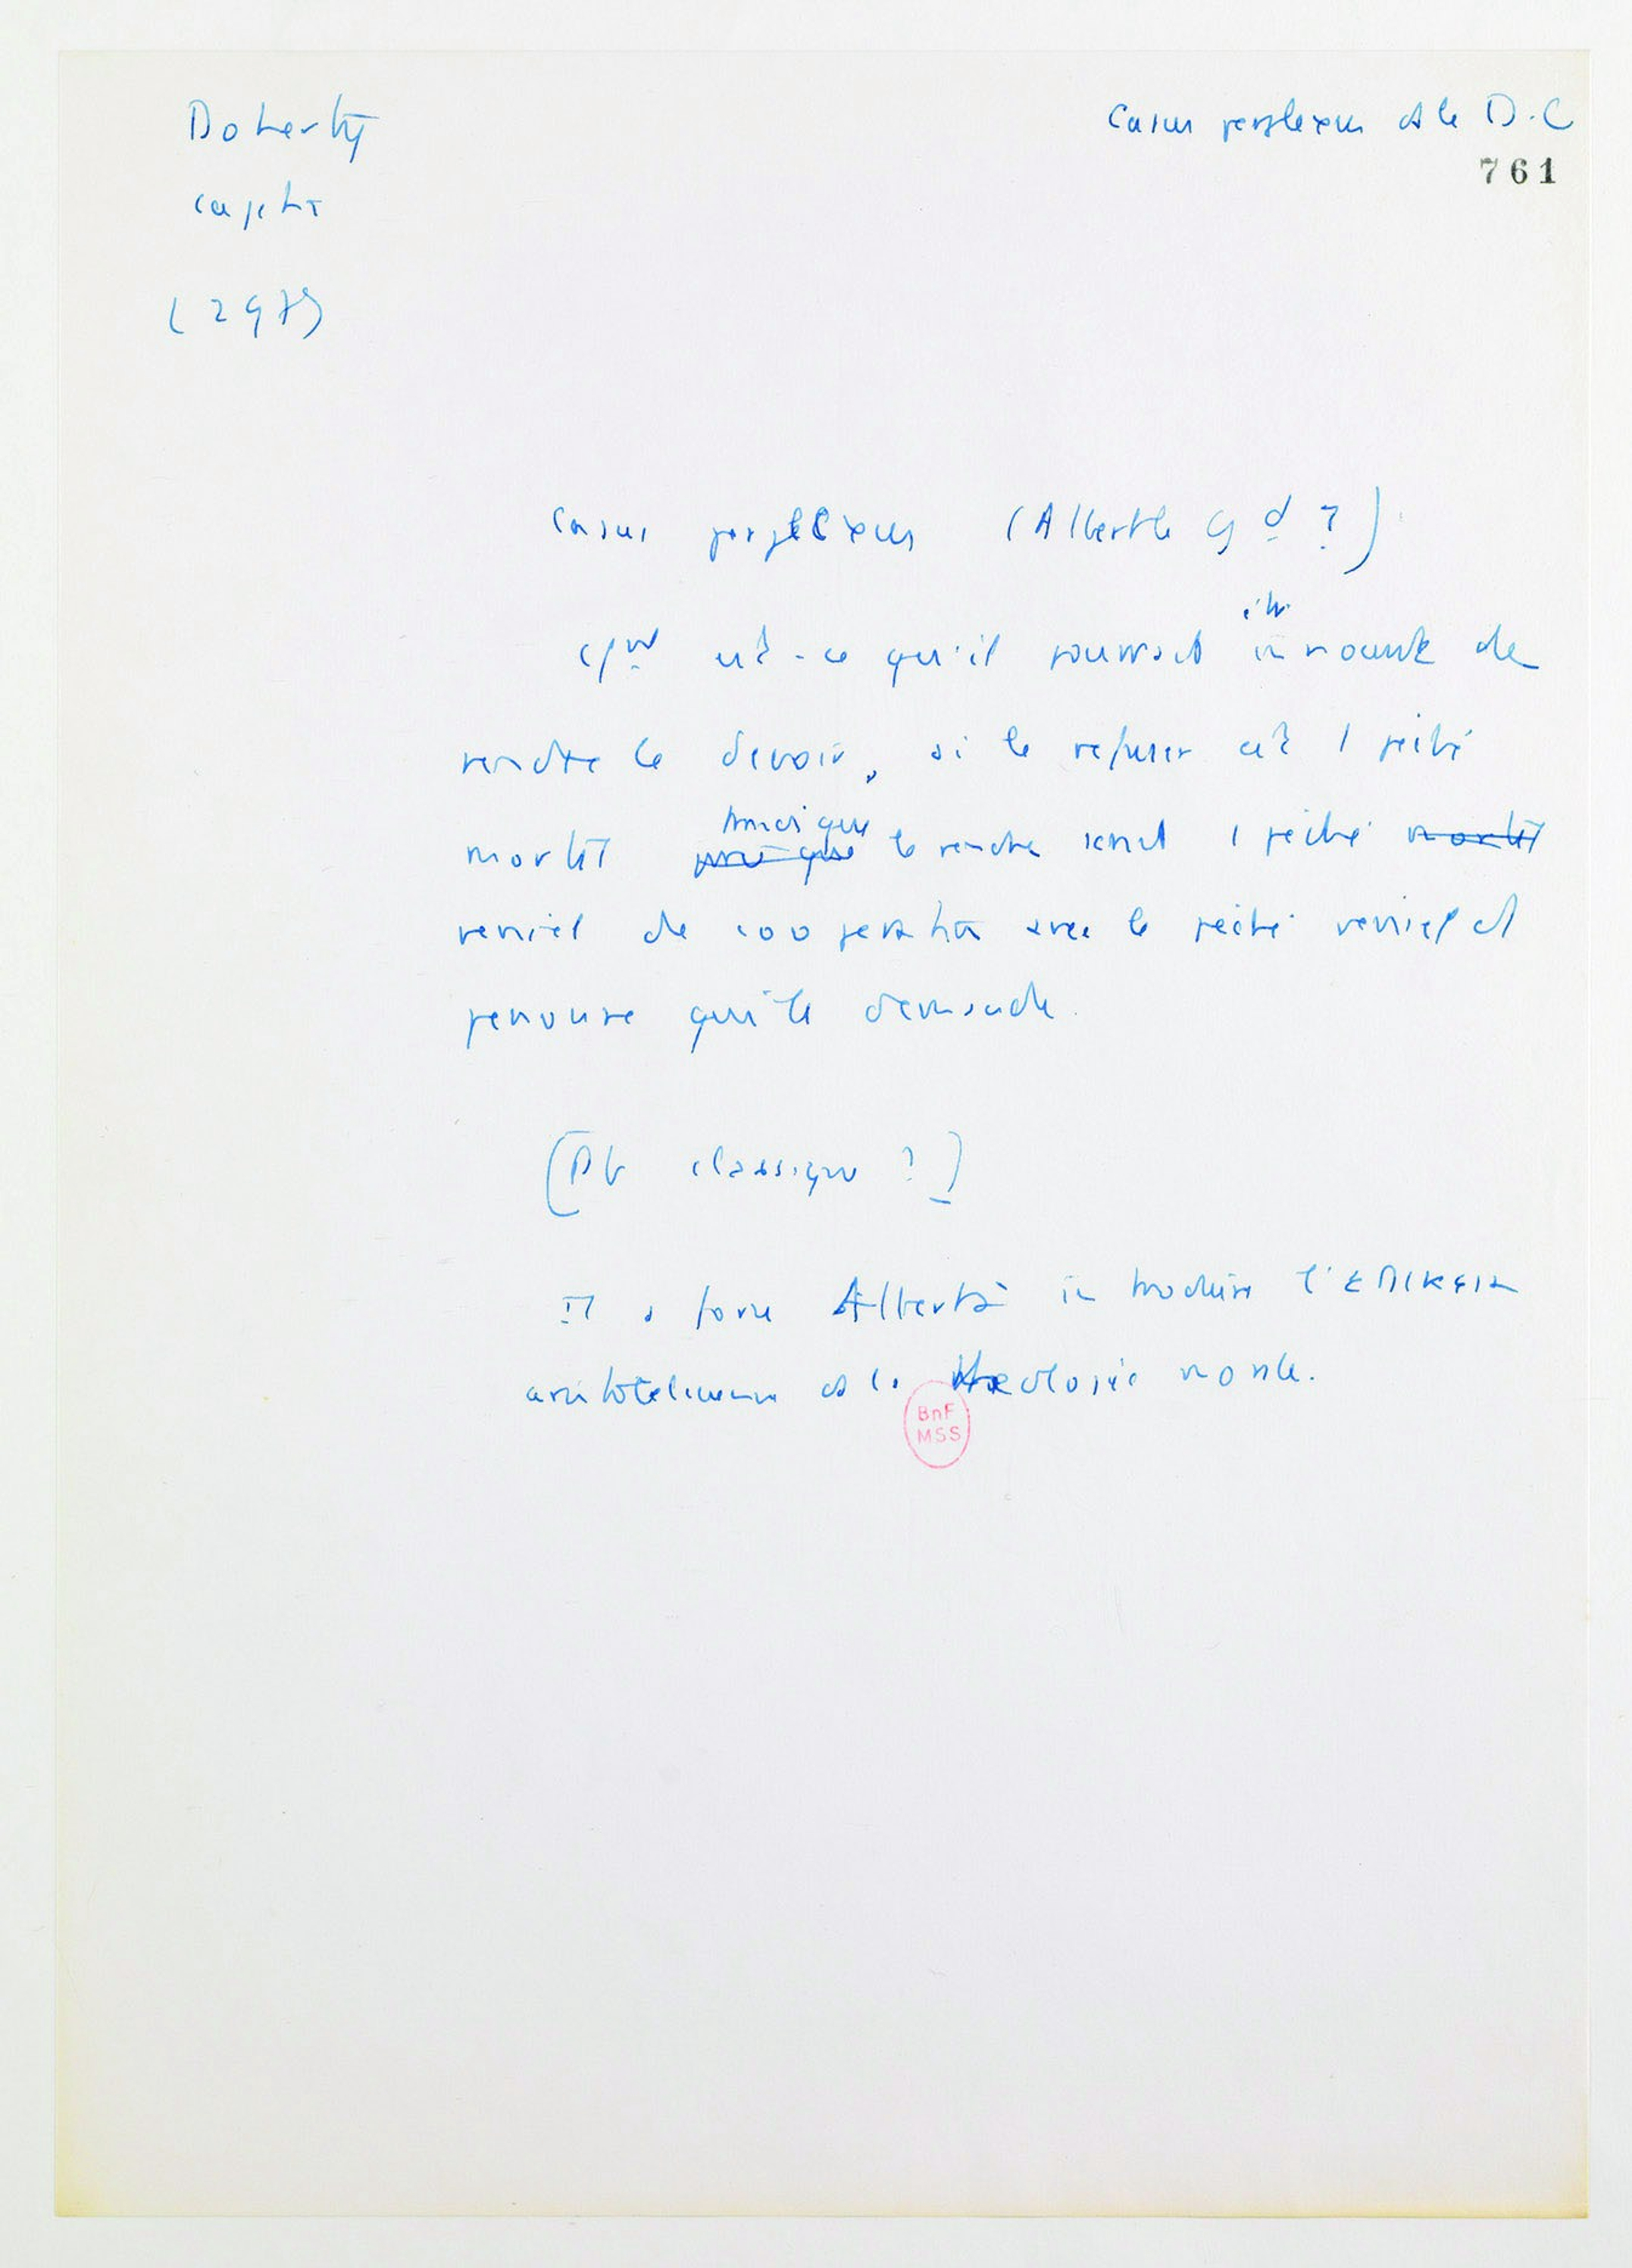 Doherty
Casus perplexus ds le D.C
761
(297)
Casus perplexus (Albert le Gd ?)
Ct est-ce qu'il pourrait être innocent de
rendre le devoir, si le refuser est 1 péché
mortel tandis que le rendre serait 1 péché mortel
veniel de cooperation avec le péché veniel d
personne qui le demande.
[Pb classique ?]
Il a fallu Albert introduire l'επικεια
aristotelicienne ds la theologie morale.
BnF
MSS